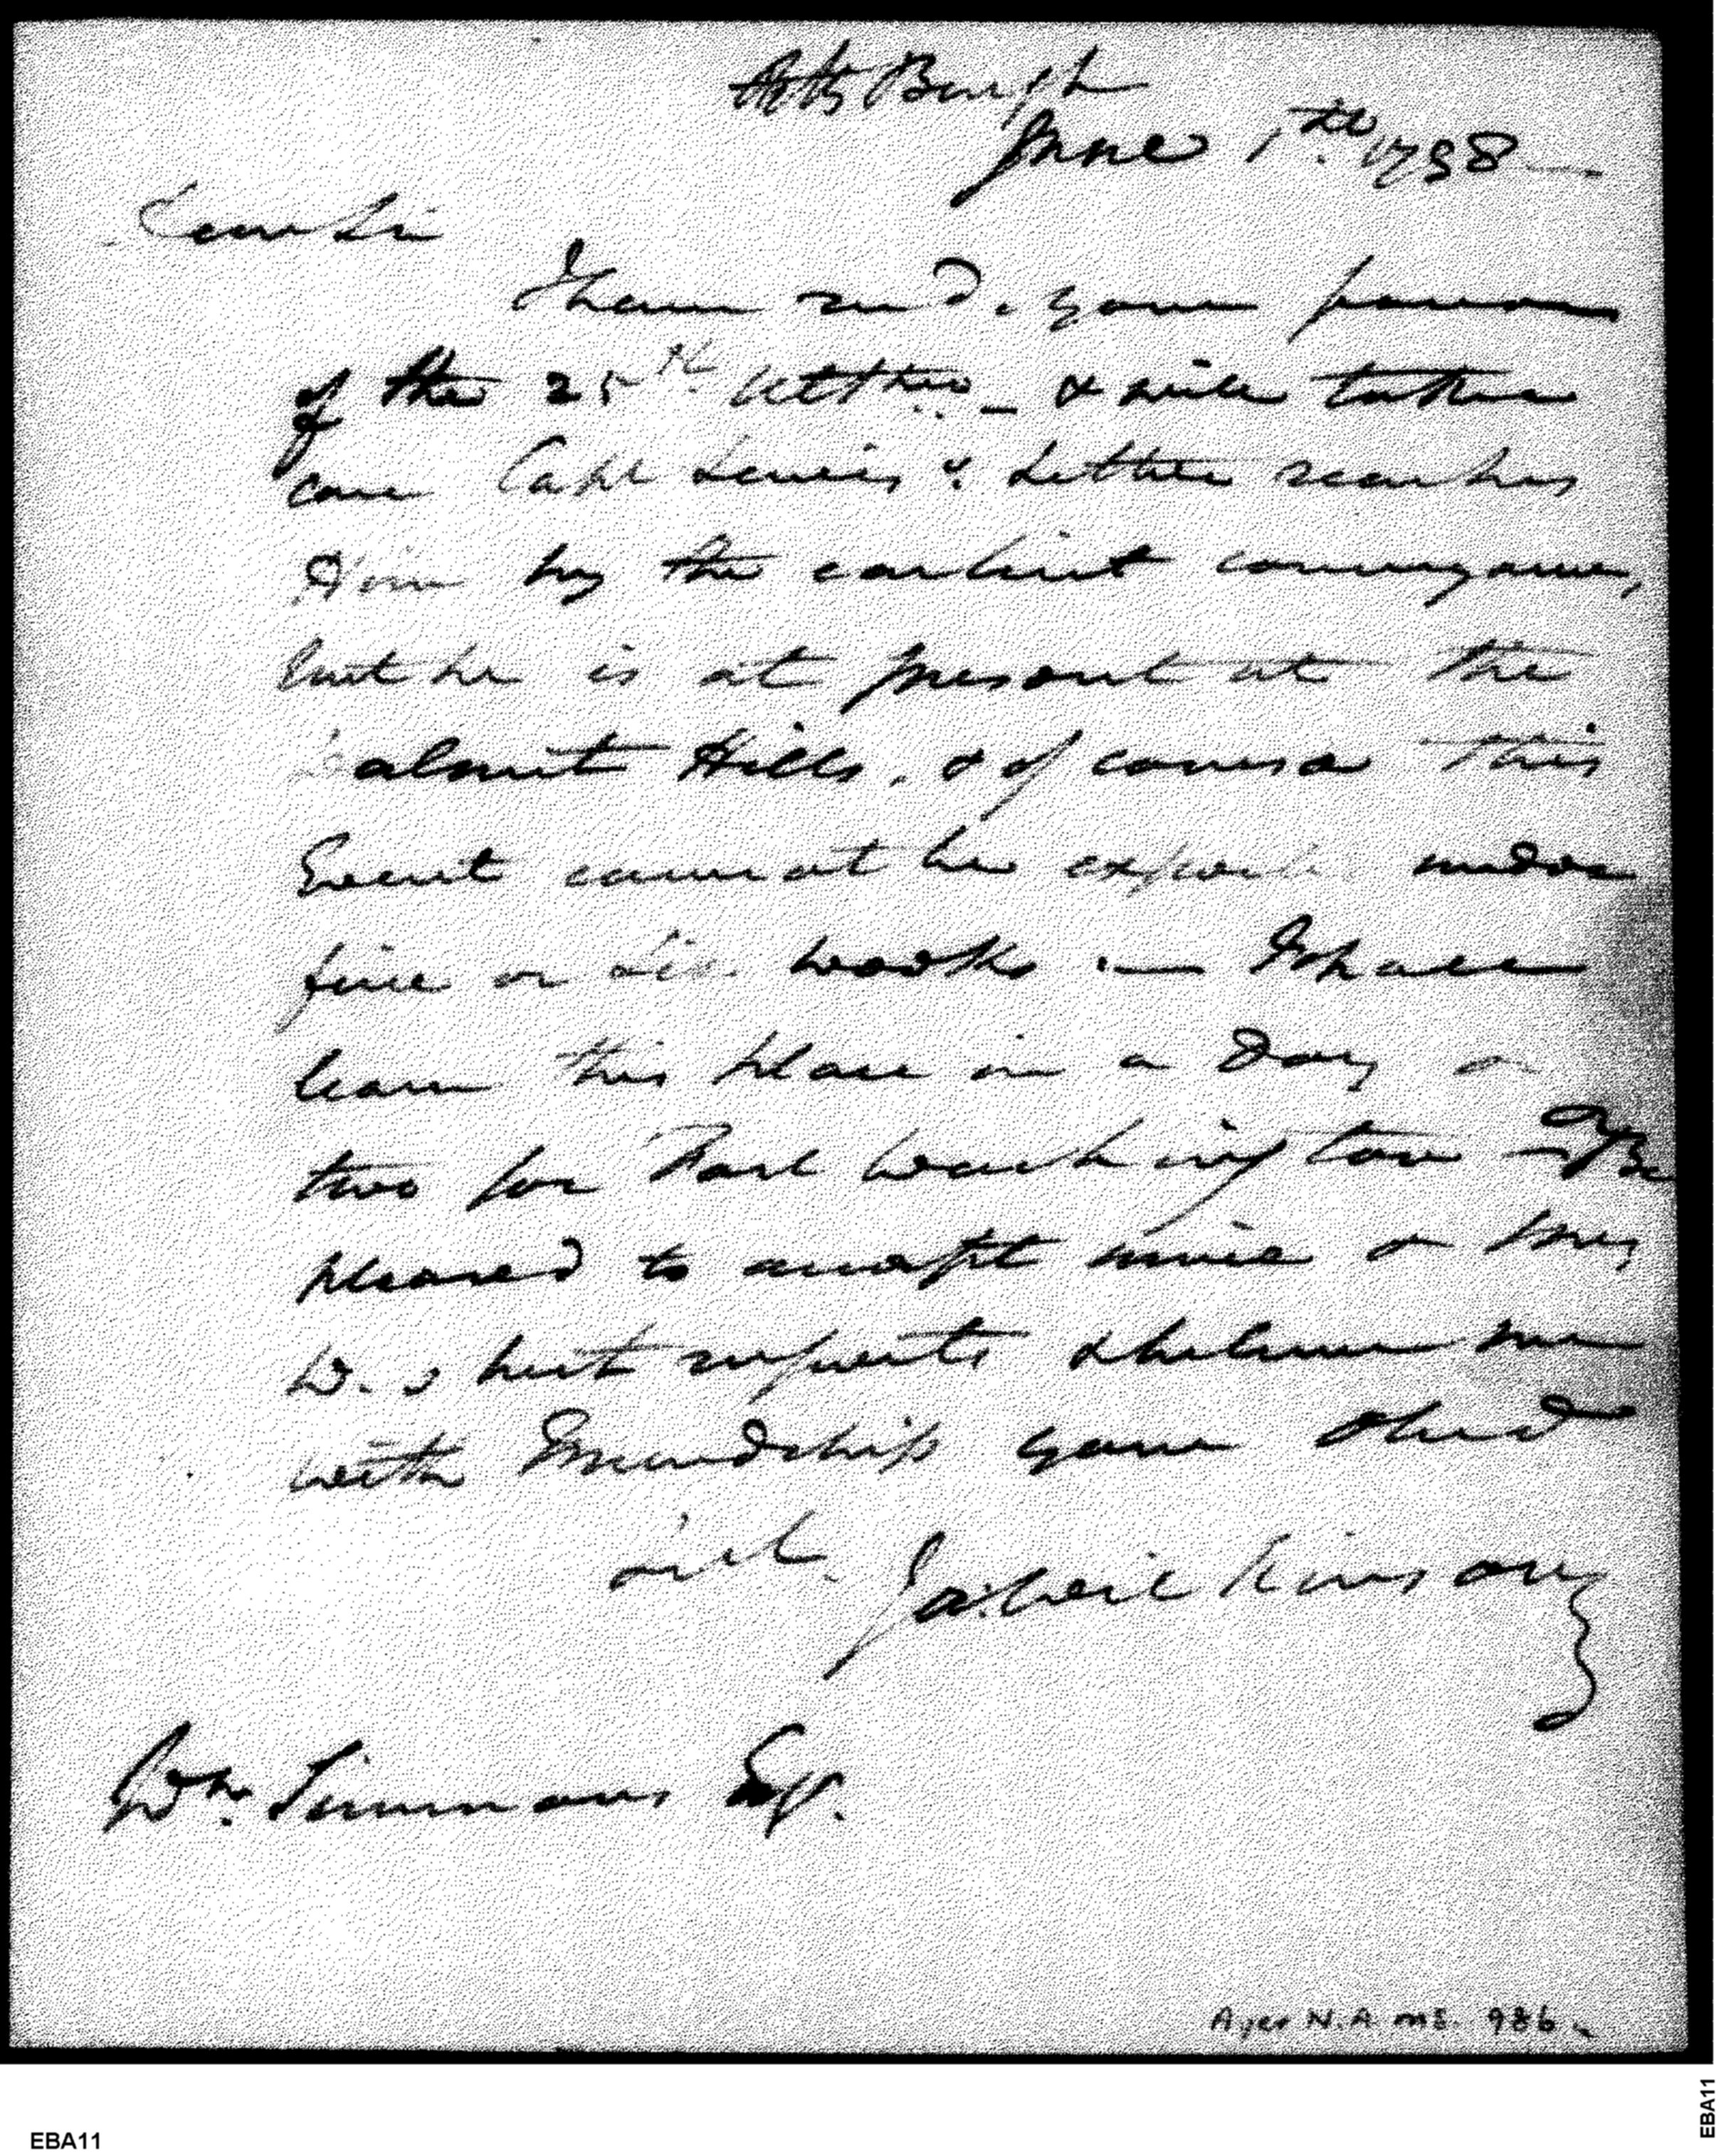 Pitts Burgh
June 1th. 1798
Dear Sir
I have recd. your favour
of the 25th. Ultimo _ & will take
care Capt Lewis's Letter reaches
Him by the earliest conveyance,
but he is at present at the
Walnut Hills, & of course this
Event cannot be expected under
five or six weeks — I shall
leave this place in a Day or
two for Fort Washington — Be
pleased to accept mine & Mrs
W.s best respects & believe me
with Friendship your obed
Ja: Wilkinson
Wm. Simmons Esqr.
Ayer N.A. MS. 986
EBA11
EBA11